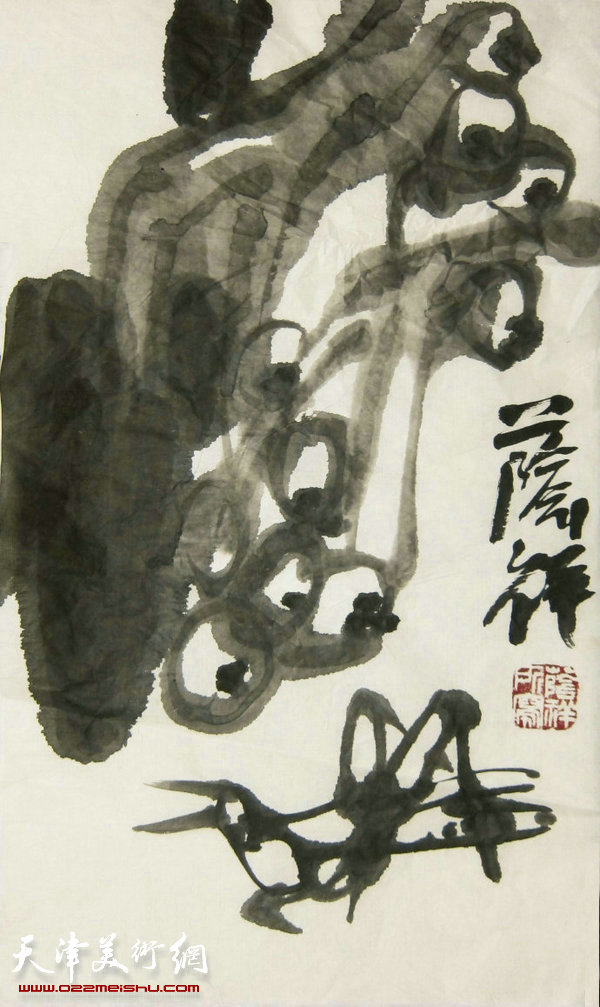 蔭祥
蔭祥
所寫
天津美術網
www.022meishu.com